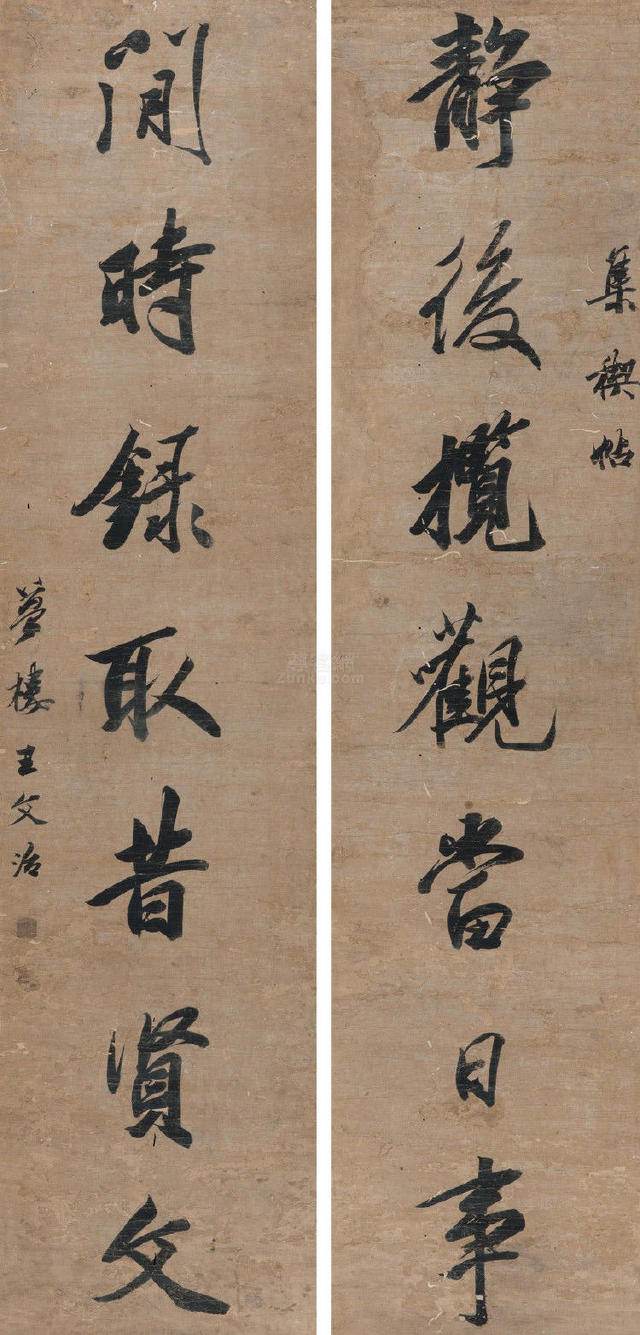 集禊帖
靜後攬觀當日事
閒時錄取昔賢文
夢樓王文治
Zunke.com